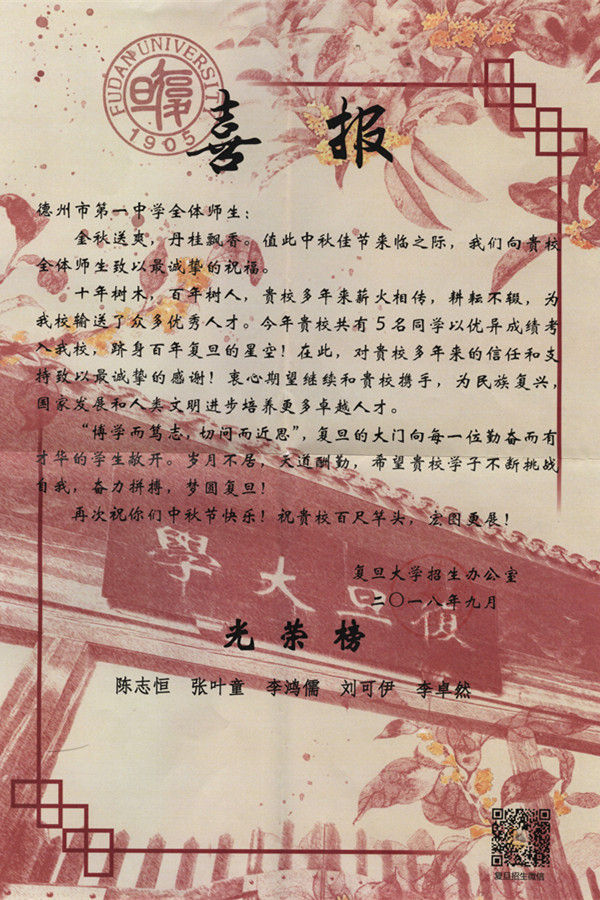 FUDAN UNIVERSITY
1905
喜报
德州市第一中学全体师生：
金秋送爽，丹桂飘香。值此中秋佳节来临之际，我们向贵校
全体师生致以最诚挚的祝福。
十年树木，百年树人，贵校多年来薪火相传，耕耘不辍，为
我校输送了众多优秀人才。今年贵校共有5名同学以优异成绩考
入我校，跻身百年复旦的星空！在此，对贵校多年来的信任和支
持致以最诚挚的感谢！衷心期望继续和贵校携手，为民族复兴，
国家发展和人类文明进步培养更多卓越人才。
“博学而笃志，切问而近思”，复旦的大门向每一位勤奋而有
才华的学生敞开。岁月不居，天道酬勤，希望贵校学子不断挑战
自我，奋力拼搏，梦圆复旦！
再次祝你们中秋节快乐！祝贵校百尺竿头，宏图更展！
學大旦復
复旦大学招生办公室
二〇一八年九月
光荣榜
陈志恒 张叶童 李鸿儒 刘可伊 李卓然
复旦招生微信